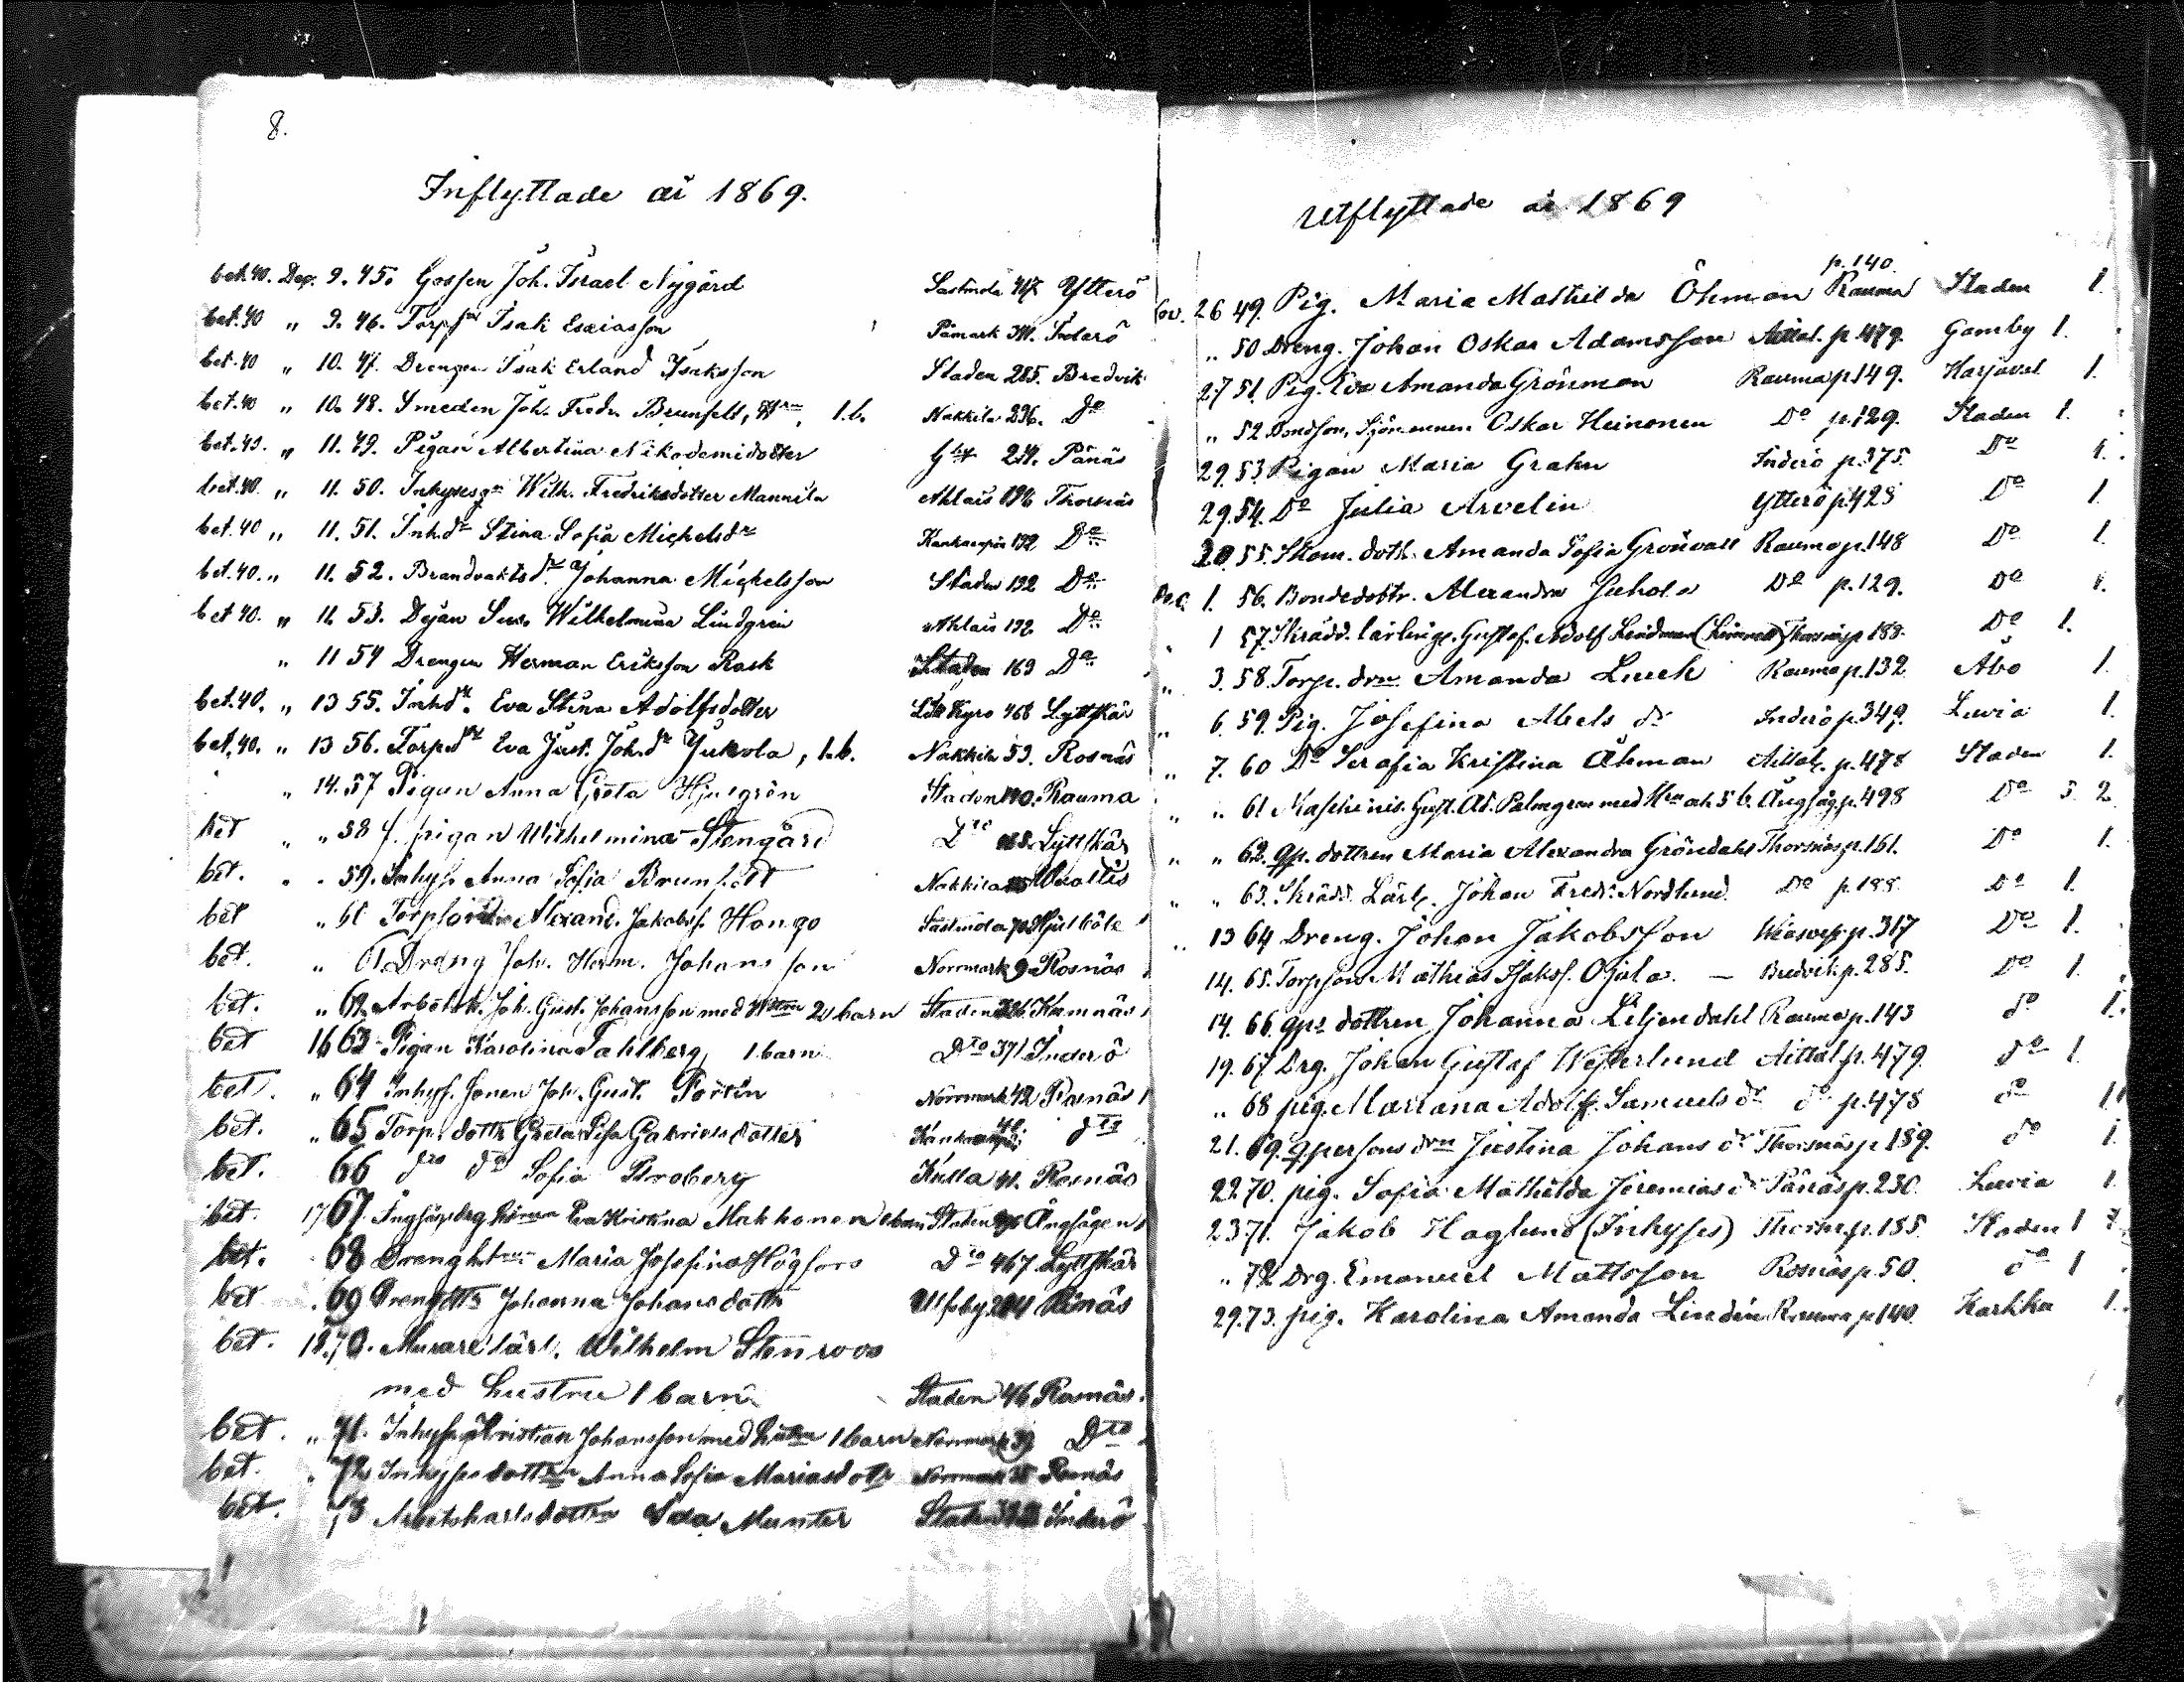 8.
Inflyttade år 1869.
bet. 40. Dec. 9. 45. Gossen Joh. Israel Nygård Sastmola 417 Ytterö
bet. 40 " 9. 46. Torpsn Isak Esaiasson Påmark Inderö
bet. 40 " 10. 47. Drengen Isak Erland Isaksson Staden 285. Bredvik
bet. 40 " 10. 48. Smeden Joh. Fredr. Brunfelt, Hru, 1. b. Nakkila 296. Do
bet. 40. " 11. 49. Pigan Albertina Nikodemidotter 234. Pånäs
bet. 40. " 11. 50. Inhysesgn Wilh. Fredriksdotter Mannila Ahlais 192 Thorsnäs
bet. 40 " 11. 51. Inhdr Stina Sofia Michelsdr Kankaanpää 192 Do
bet. 40. " 11. 52. Brandvaktsdr Johanna Michelsson Staden 192 Do
bet 40. " 11. 53. Dejan Sus. Wilhelmina Lindgrén Ahlais 192 Do
" 11 54 Drengen Herman Eriksson Rask Staden 169 Do
bet. 40. " 13 55. Inhdr. Eva Stina Adolfsdotter Kyro 468 Lyttskär
bet. 40. " 13 56. Torpdr Eva Just. Joh.dr Jukola, 1. b. Nakkila 53. Rosnäs
" 14. 57 Pigan Anna Greta Hjulgrén Staden 140. Rauma
bet " " 58 f. pigan Wilhelmina Stengård Dto 468. Lyttskär
bet. " " 59. Inhys. Anna Sofia Brunfeldt Nakkila
bet " 60 Torpson Alexand. Jakobss. Hongo Sastmola 70 Hjulböle
bet. " 61 Dräng Joh. Herm. Johansson Norrmark 9 Rosnäs
bet. " 62 Arbetsk. Joh. Gust. Johansson med Hstru 2 barn Staden Kumnäs
bet 16 63 Pigan Karolina Fahlberg 1 barn Dto 371 Inderö
bet. " 64 Inhys. sonen Joh. Gust. Portin Norrmark 42 Rosnäs
bet. " 65 Torp. dottr Greta Lisa Gabrielsdotter Kankaanpää 42. dto
bet. 66 dto do Sofia Broberg Kulla 41. Rosnäs
bet. 17 67. Ångsågsdrg hustrun Eva Kristina Makkonen 1 barn Staden Ångsågen
bet. 68 Drenghstrun Maria Josefina Högfors Dto 467 Lyttskär
bet " 69 Drengdtr Johanna Johansdottr Ulfsby 204 Pånäs
bet. 18. 70. Murarelärl. Wilhelm Stenroos
med hustru 1 barn Staden 46 Rosnäs.
bet. " 71. Inhyses Kristian Johansson med hustru 1 barn Norrmark 39 Dto
bet. " 72 Inhyses dottern Anna Sofia Mariasdotr Norrmark 38 Rosnäs
bet. " 73 Arbetskarlsdottern Ida Munter Staden Inderö
Utflyttade år 1869
p. 140.
Nov. 26 49. Pig. Maria Mathilda Öhman Rauma Staden 1.
" 50 Dreng. Johan Oskar Adamsson Aittal. p. 479. Gamby 1.
27 51. Pig. Eva Amanda Grönman Rauma p. 149. Harjaval. 1.
" 52 Bondson, Sjömannen Oskar Heinonen Do p. 129. Staden 1.
29. 53. Pigan Maria Grahn Inderö p. 375. Do 1.
29. 54. Do Julia Arvelin Ytterö p. 428 Do 1.
30. 55. Skom. dottr. Amanda Sofia Grönvall Rauma p. 148 Do 1.
Dec. 1. 56. Bondedottr. Alexandra Juhola Do p. 129. Do 1.
" 1 57. Skrädd. lärlinge Gustaf Adolf Lindman Thorsnäs p. 188. Do 1.
" 3. 58. Torp. drn Amanda Luuk Rauma p. 132 Åbo 1.
" 6. 59. Pig. Josefina Abels dr Inderö p. 349. Luvia 1.
" 7. 60 Do Serafia Kristina Åhman Aittal. p. 478 Staden 1.
" " 61 Maschinist. Gust. Ad. Palmgren med Hru ah. 5 b. Ångsåg. p. 498 Do 5. 2
" " 62. qp. dottren Maria Alexandra Gröndahl Thorsnäs p. 161. Do 1.
" " 63. Skrädd. Lärl. Johan Fredr. Nordlund Do p. 188. Do 1.
" 13 64 Dreng. Johan Jakobsson p. 317 Do 1.
14. 65. Torpson Mathias Isakss. Ojala. — Bredvik p. 285. Do 1.
14. 66. qps dottren Johanna Liljendahl Rauma p. 143 do 1.
19. 67. Drg. Johan Gustaf Westerlund Aittal p. 479. do 1.
" 68 pig. Mariana Adolf. Samuels dr do p. 478 do 1.
21. 69. qpersons drn Justina Johans dr Thorsnäs p. 189. do 1.
22. 70. pig. Sofia Mathilda Jeremias dr Pånäs p. 230. Luvia 1.
23. 71. Jakob Haglund (Inhyses) Thorsn. p. 185. Staden 1
" 72. Drg. Emanuel Mattsson Rosnäs p. 50. do 1
29. 73. pig. Karolina Amanda Lindén Rauma p. 140. Karkku 1.